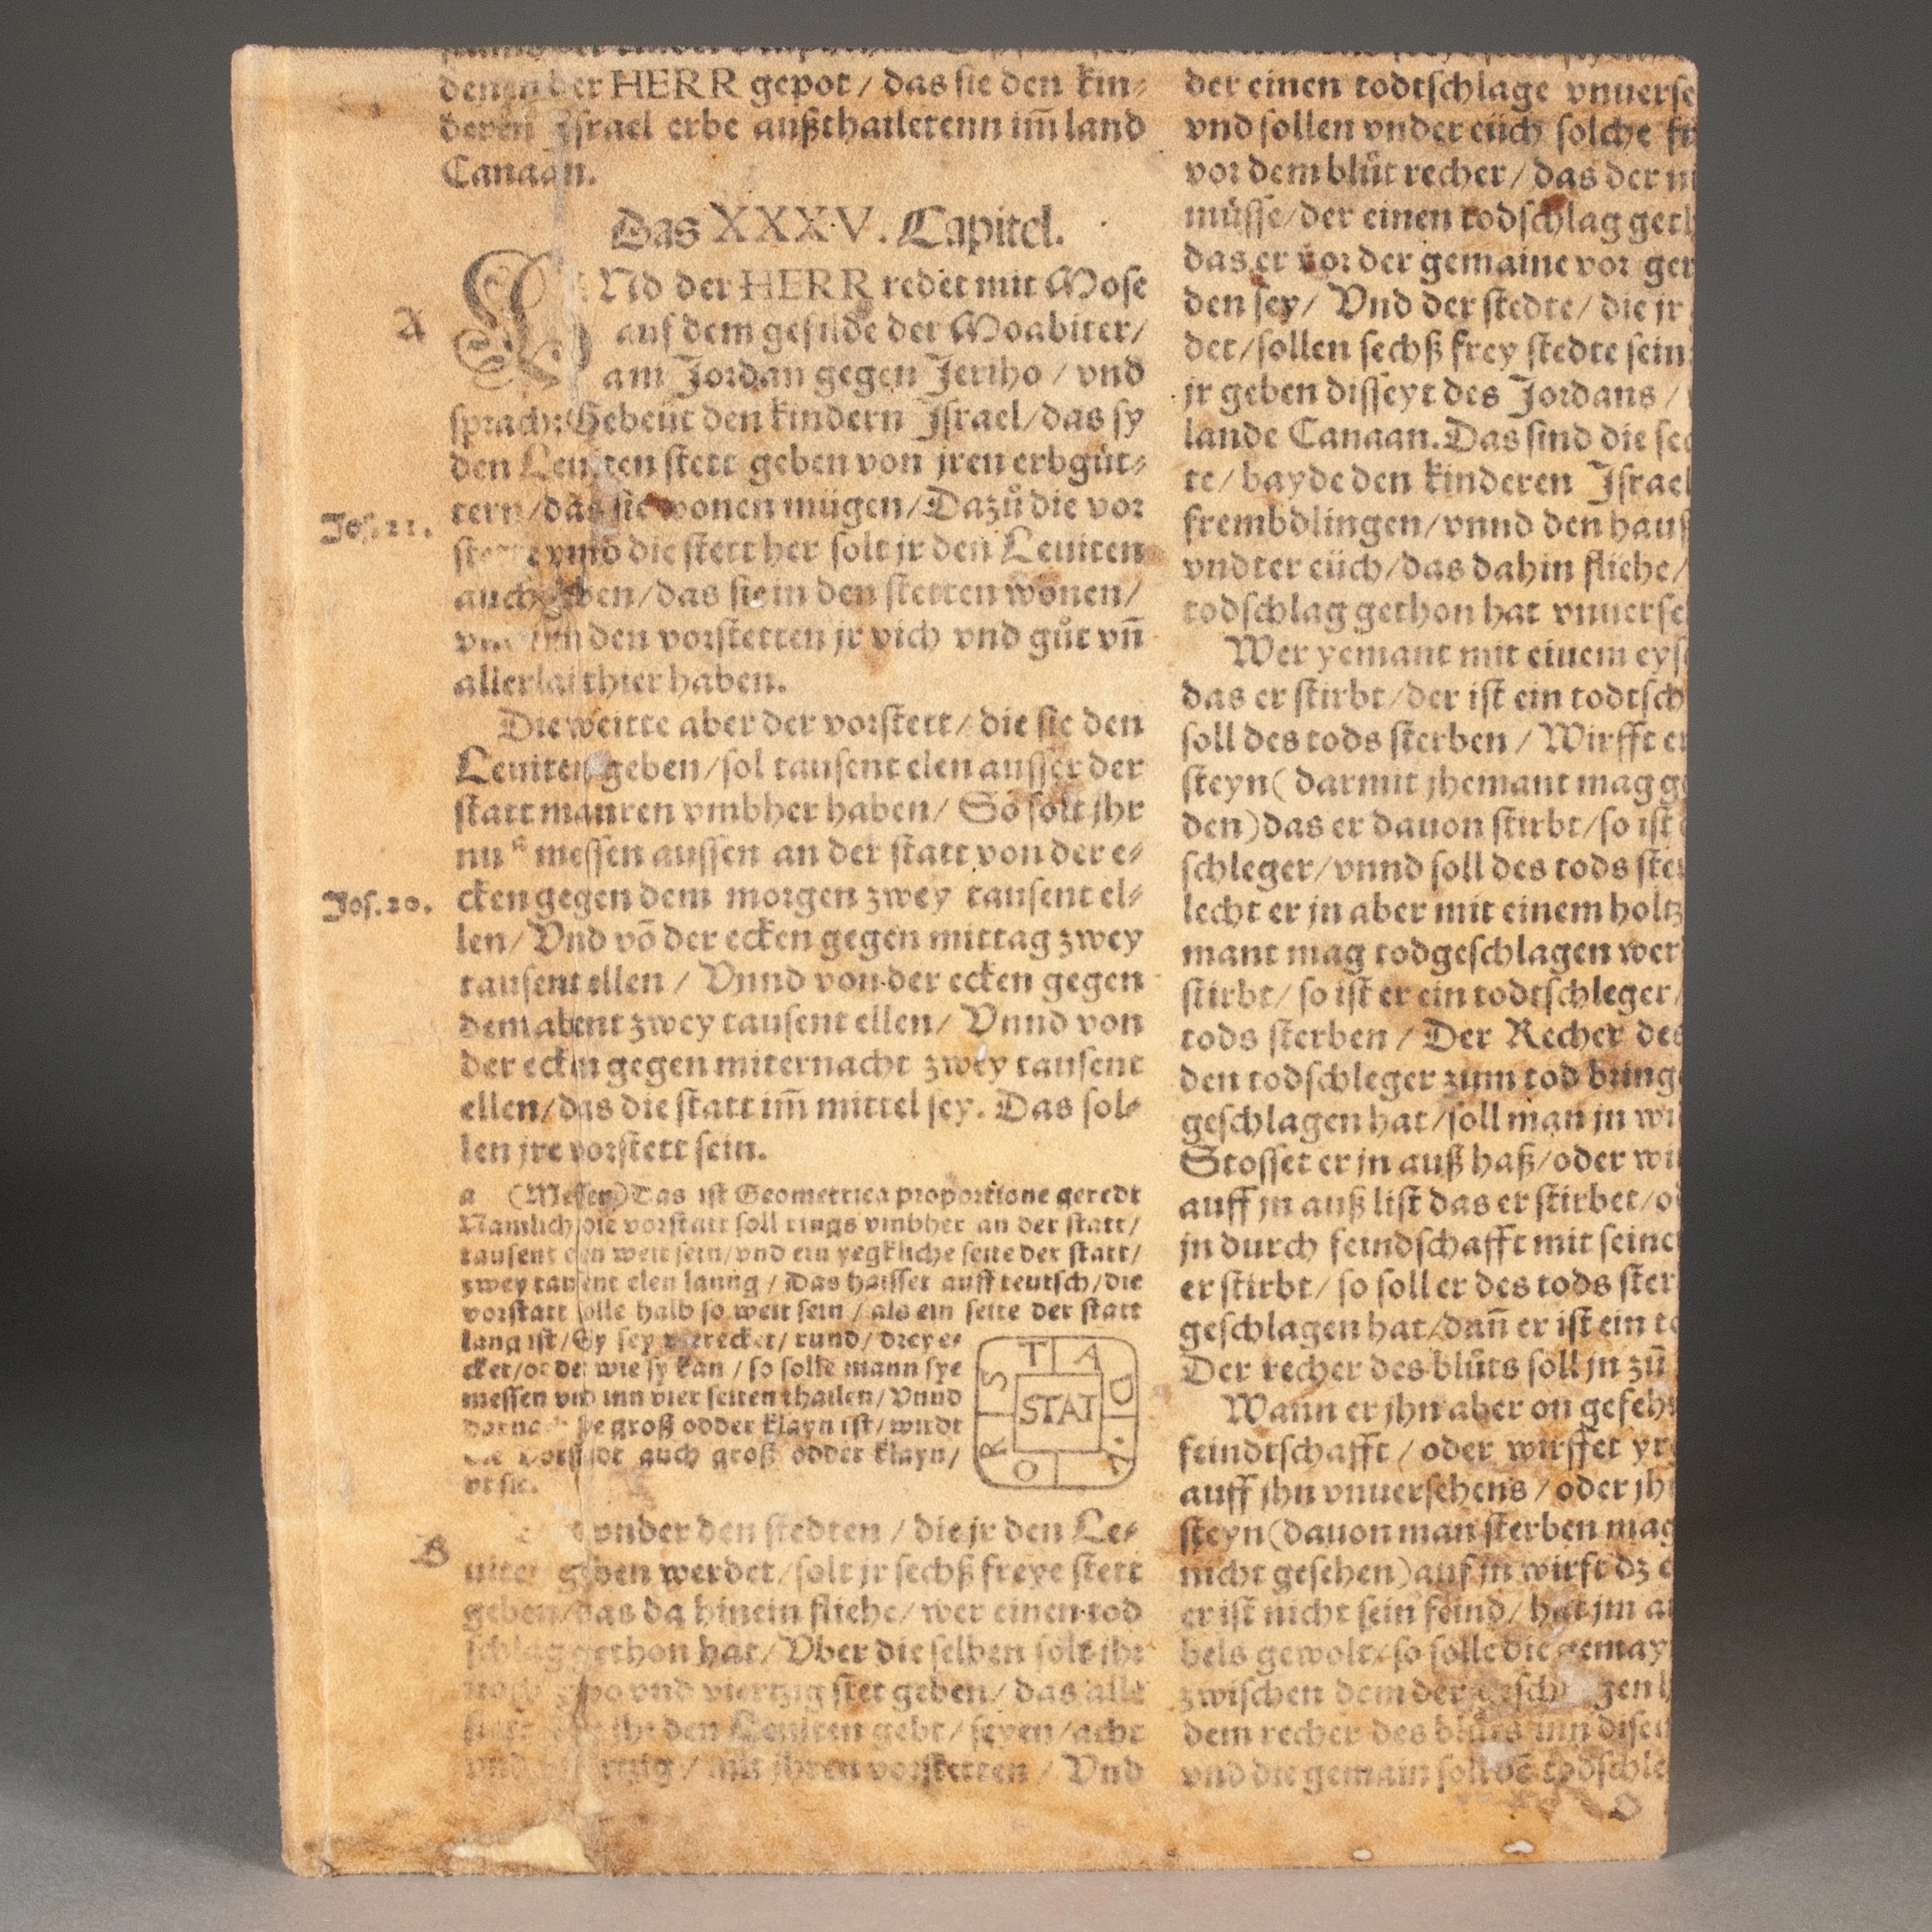 denen der HERR gepot / das sie den kin⸗
deren Israel erbe außthailetenn im̃ land
Canaan.
Das XXXV. Capitel.
A
VNd der HERR redet mit Mose
auf dem gefilde der Moabiter/
am Jordan gegen Jeriho / vnd
sprach: Gebeüt den kindern Israel/das sy
den Leuiten stett geben von jren erbgüt⸗
Jos. 21.
tern/das sie wonen mügen/Dazů die vor
stette vnnd die stett her solt jr den Leuiten
auch geben/das sie in den stetten wonen/
vnd inn den vorstetten jr vich vnd gůt vñ
allerlai thier haben.
Die weitte aber der vorstett/ die sie den
Leuiten geben/sol tausent elen ausser der
statt mauren vmbher haben/ So solt jhr
nu a messen aussen an der statt von der e⸗
Jos. 20.
cken gegen dem morgen zwey tausent el⸗
len/ Vnd võ der ecken gegen mittag zwey
tausent ellen / Vnnd von der ecken gegen
dem abent zwey tausent ellen/ Vnnd von
der ecken gegen miternacht zwey tausent
ellen/das die statt im̃ mittel sey. Das sol⸗
len jre vorstett sein.
a (Messen) Das ist Geometrica proportione geredt
Namlich die vorstatt soll rings vmbher an der statt/
tausent elen weit sein/vnd ein yegkliche seite der statt/
zwey tausent elen lanng / Das haisset auff teutsch/die
vorstatt solle halb so weit sein / als ein seite der statt
lang ist/Sy sey vierecket/ rund/ dreye⸗
cket/oder wie sy kan / so solle mann sye
messen vnd inn vier seiten thailen/ Vnnd
darnach sye groß odder klayn ist/ wirdt
die vorstadt auch groß odder klayn/
VORSTAD
STAT
B
vnder den stedten / die jr den Le⸗
uiten geben werdet/solt jr sechß freye stett
geben/das da hinein fliehe/ wer einen tod
schlag gethon hat/ Vber die selben solt jhr
noch zwo vnd viertzig stet geben/ das alle
stett die jhr den Leuiten gebt/ seyen/acht
vnd viertzig / mit jhren vorstetten / Vnd
der einen todtschlage vnuerse
vnd sollen vnder eüch solche fr
vor dem blůt recher/das der ni
müsse/der einen todschlag geth
das er vor der gemaine vor ger
den sey/ Vnd der stedte/ die jr
det/sollen sechß frey stedte sein:
jr geben disseyt des Jordans /
lande Canaan. Das sind die sec
te/ bayde den kinderen Israel
frembdlingen/vnnd den hauß
vndter eüch/das dahin fliehe/
todschlag gethon hat vnuerse
Wer yemant mit einem eyse
das er stirbt/der ist ein todtsch
soll des tods sterben / Wirfft er
steyn( darmit jhemant mag ge
den)das er dauon stirbt/so ist e
schleger/vnnd soll des tods ster
lecht er jn aber mit einem holtz
mant mag todgeschlagen wer
stirbt/ so ist er ein todtschleger/
tods sterben / Der Recher des
den todschleger zum tod bringe
geschlagen hat/soll man jn wi
Stosset er jn auß haß/oder wi
auff jn auß list das er stirbet/o
jn durch feindschafft mit seine
er stirbt/ so soll er des tods ster
geschlagen hat/dañ er ist ein to
Der recher des blůts soll jn zů
Wann er jhn aber on gefehr
feindtschafft / oder wirffet yr
auff jhn vnuersehens / oder jh
steyn(dauon man sterben mag
nicht gesehen)auf jn wirft dz e
er ist nicht sein feind/ hat jm a
bels gewolt/ so solle die gemay
zwischen dem der geschlagen h
dem recher des blůts inn disen
vnd die gemain soll dē todschle